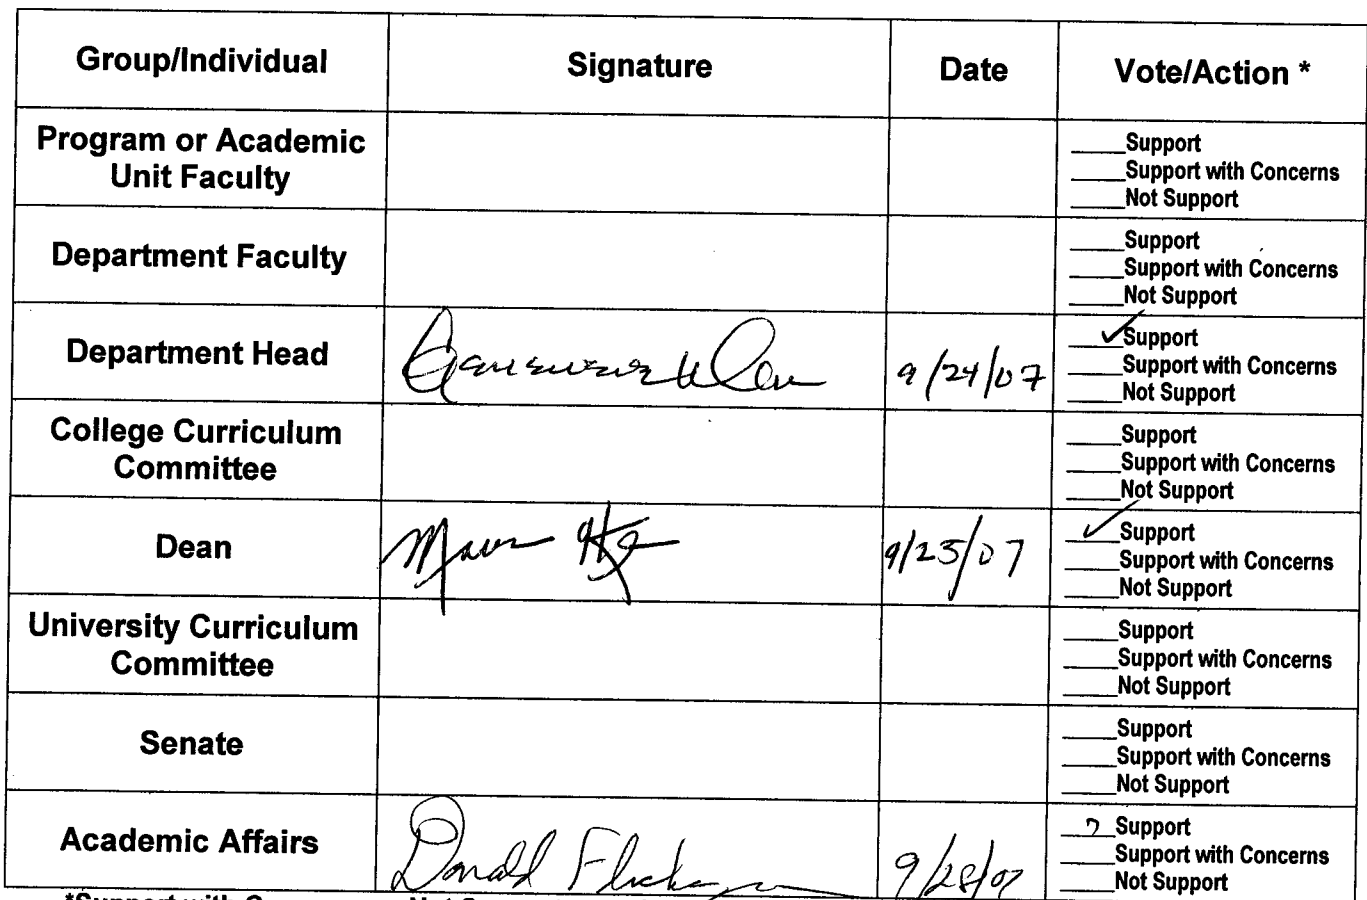 Group/Individual Signature Date Vote/Action *
Program or Academic
Unit Faculty
____Support
____Support with Concerns
____Not Support
Department Faculty
____Support
____Support with Concerns
____Not Support
Department Head 9/24/07
✓Support
____Support with Concerns
____Not Support
College Curriculum
Committee
____Support
____Support with Concerns
____Not Support
Dean 9/25/07
✓Support
____Support with Concerns
____Not Support
University Curriculum
Committee
____Support
____Support with Concerns
____Not Support
Senate
____Support
____Support with Concerns
____Not Support
Academic Affairs Donald 9/28/07
Support
____Support with Concerns
____Not Support
*Support with